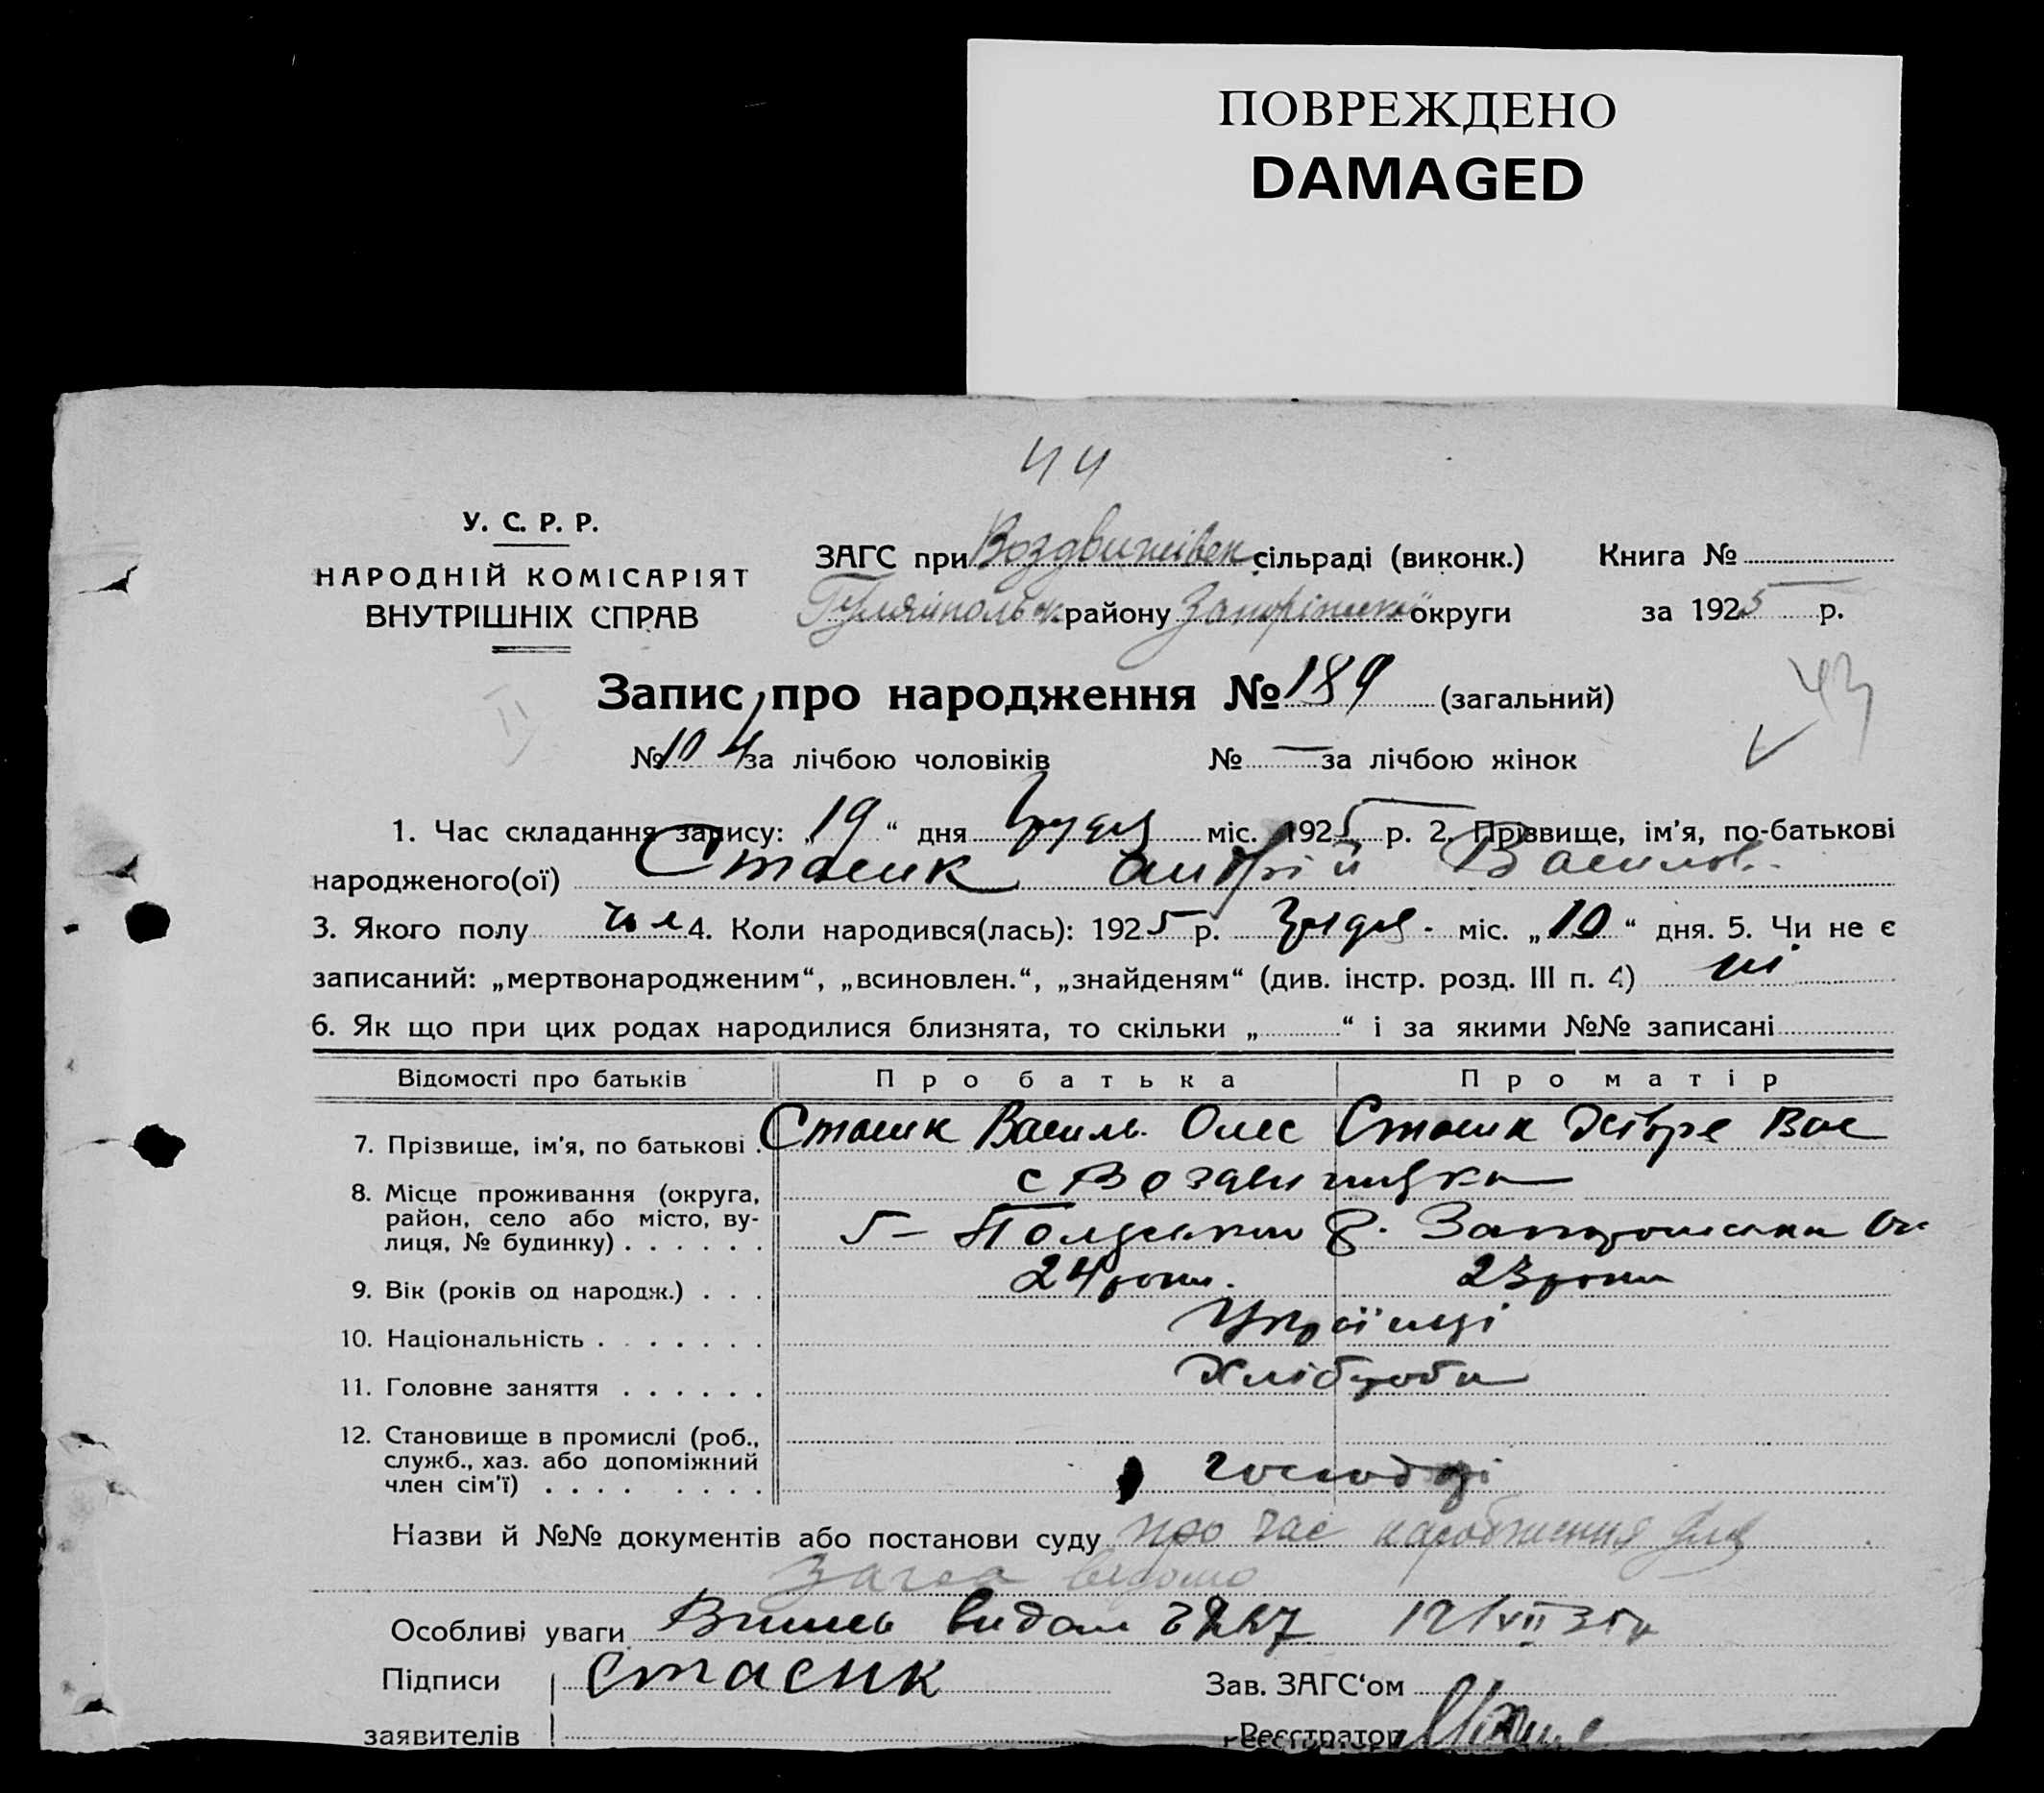 ПОВРЕЖДЕНО
DAMAGED
44
У. С. Р. Р.
НАРОДНІЙ КОМІСАРІЯТ
ВНУТРІШНІХ СПРАВ
ЗАГС при Воздвижівск сільраді (виконк.) Книга №
Гуляйпольск району Запоріжської округи за 1925 р.
Запис про народження № 189 (загальний)
43
№ 104 за лічбою чоловіків № — за лічбою жінок
1. Час складання запису: „19“ дня грудня міс. 1925 р. 2. Прізвище, ім’я, по-батькові
народженого(ої) Стасик Андрій Васильов.
3. Якого полу чол 4. Коли народився(лась): 1925 р. грудня міс. „10“ дня. 5. Чи не є
записаний: „мертвонародженим“, „всиновлен.“, „знайденям“ (див. інстр. розд. III п. 4) ні
6. Як що при цих родах народилися близнята, то скільки „ “ і за якими №№ записані
Відомості про батьків Про батька Про матір
7. Прізвище, ім’я, по батькові . Стасик Василь Олес Стасик Вас
8. Місце проживання (округа, с Воздвижівка
район, село або місто, ву-
лиця, № будинку) . . . . . . Г-Польський р. Запорожська Ок
9. Вік (років од народж.) . . . 24 роки. 23 роки
10. Національність . . . . . . . Українці
11. Головне заняття . . . . . . Хлібороби
12. Становище в промислі (роб.,
служб., хаз. або допоміжний
член сім’ї) . . . . . . . . господарі
Назви й №№ документів або постанови суду про час народження для
загса відомо
Особливі уваги Випись видана 12/VII 35р
Підписи Стасик Зав. ЗАГС‘ом
заявителів Реєстратор